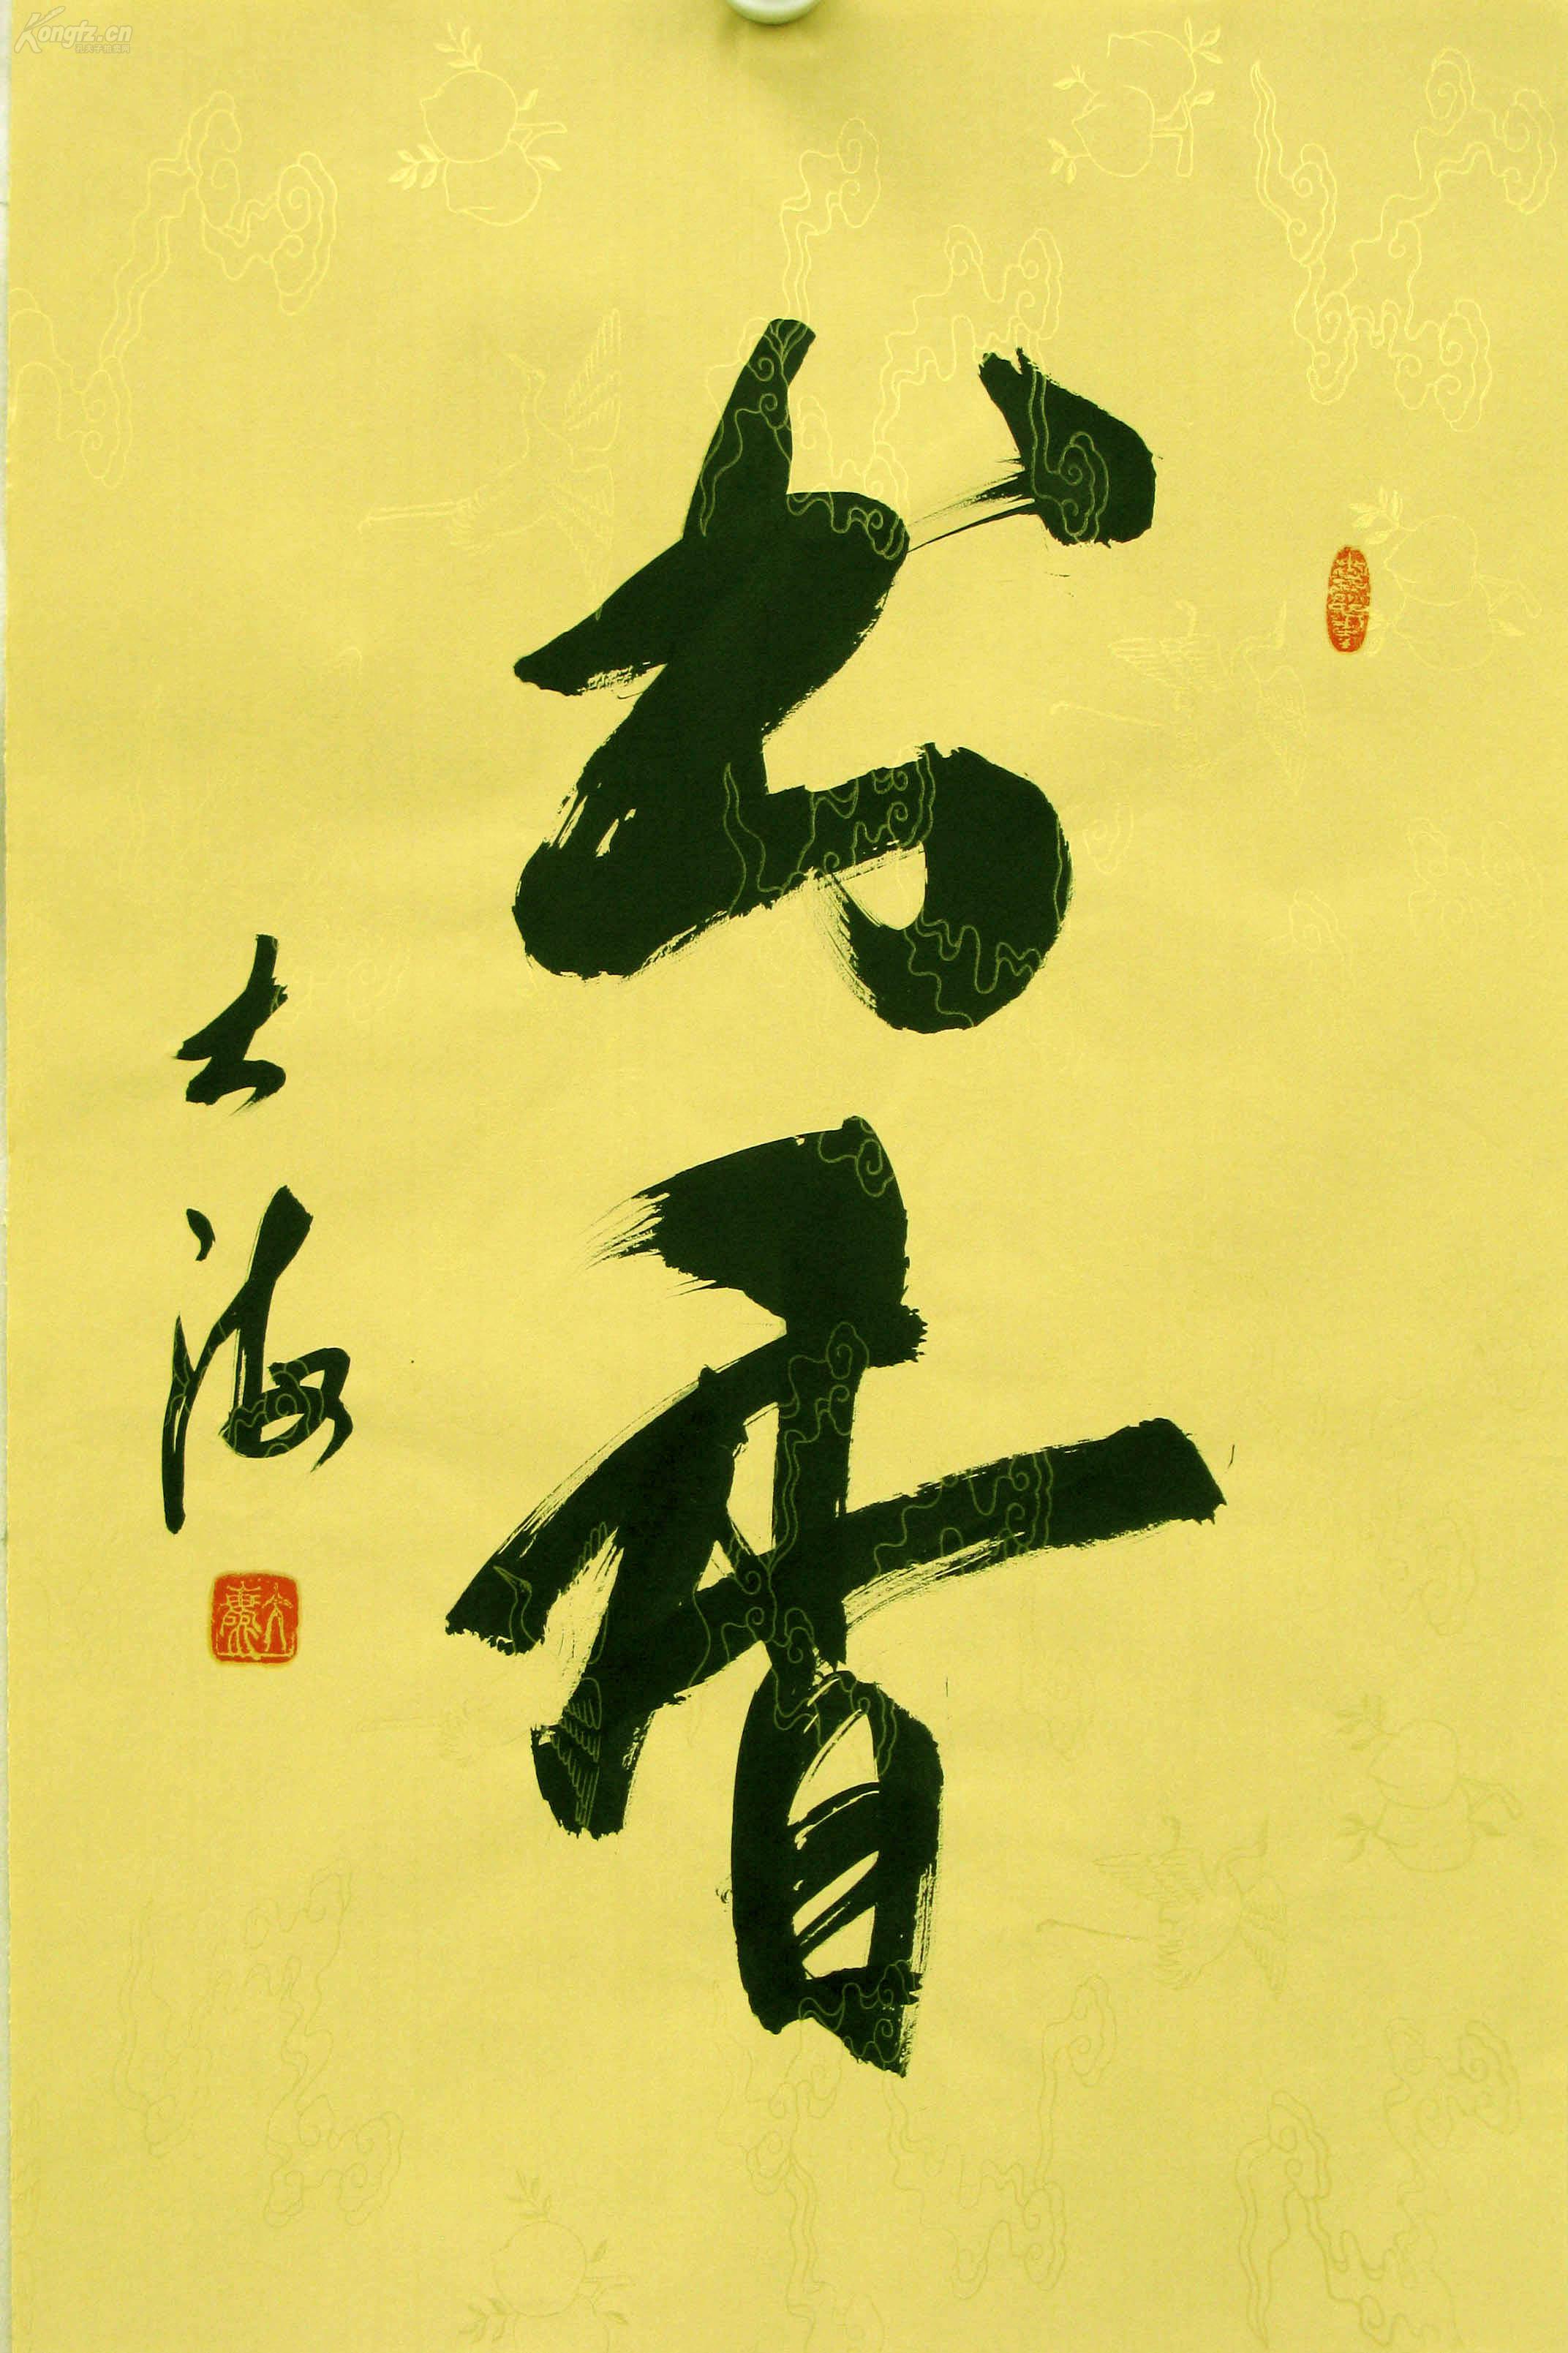 Kongfz.cn
书香
大海